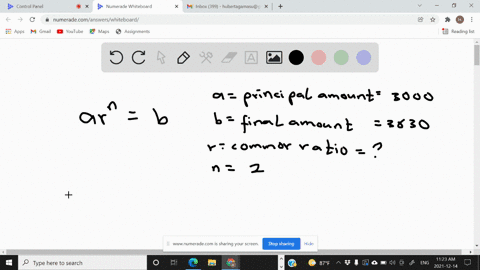 Control Panel
Numerade Whiteboard
Inbox (199)
numerade.com/answers/whiteboard/
Apps
Gmail
YouTube
Maps
Assignments
Reading list
A
ar^n = b
a = principal amount = 3000
b = final amount = 3630
r = common ratio = ?
n = 2
www.numerade.com is sharing your screen.
Stop sharing
Hide
Type here to search
87°F
ENG
11:23 AM
2021-12-14